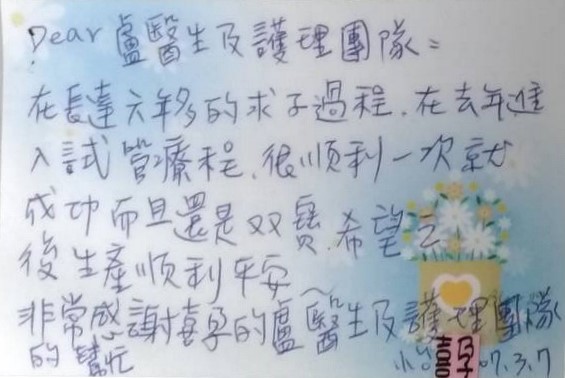 Dear 盧醫生及護理團隊：
在長達六年多的求子過程，在去年進
入試管療程，很順利一次就
成功而且還是双寶，希望之
後生產順利平安～
非常感謝喜孕的盧醫生及護理團隊
的幫忙
喜孕 07.3.7